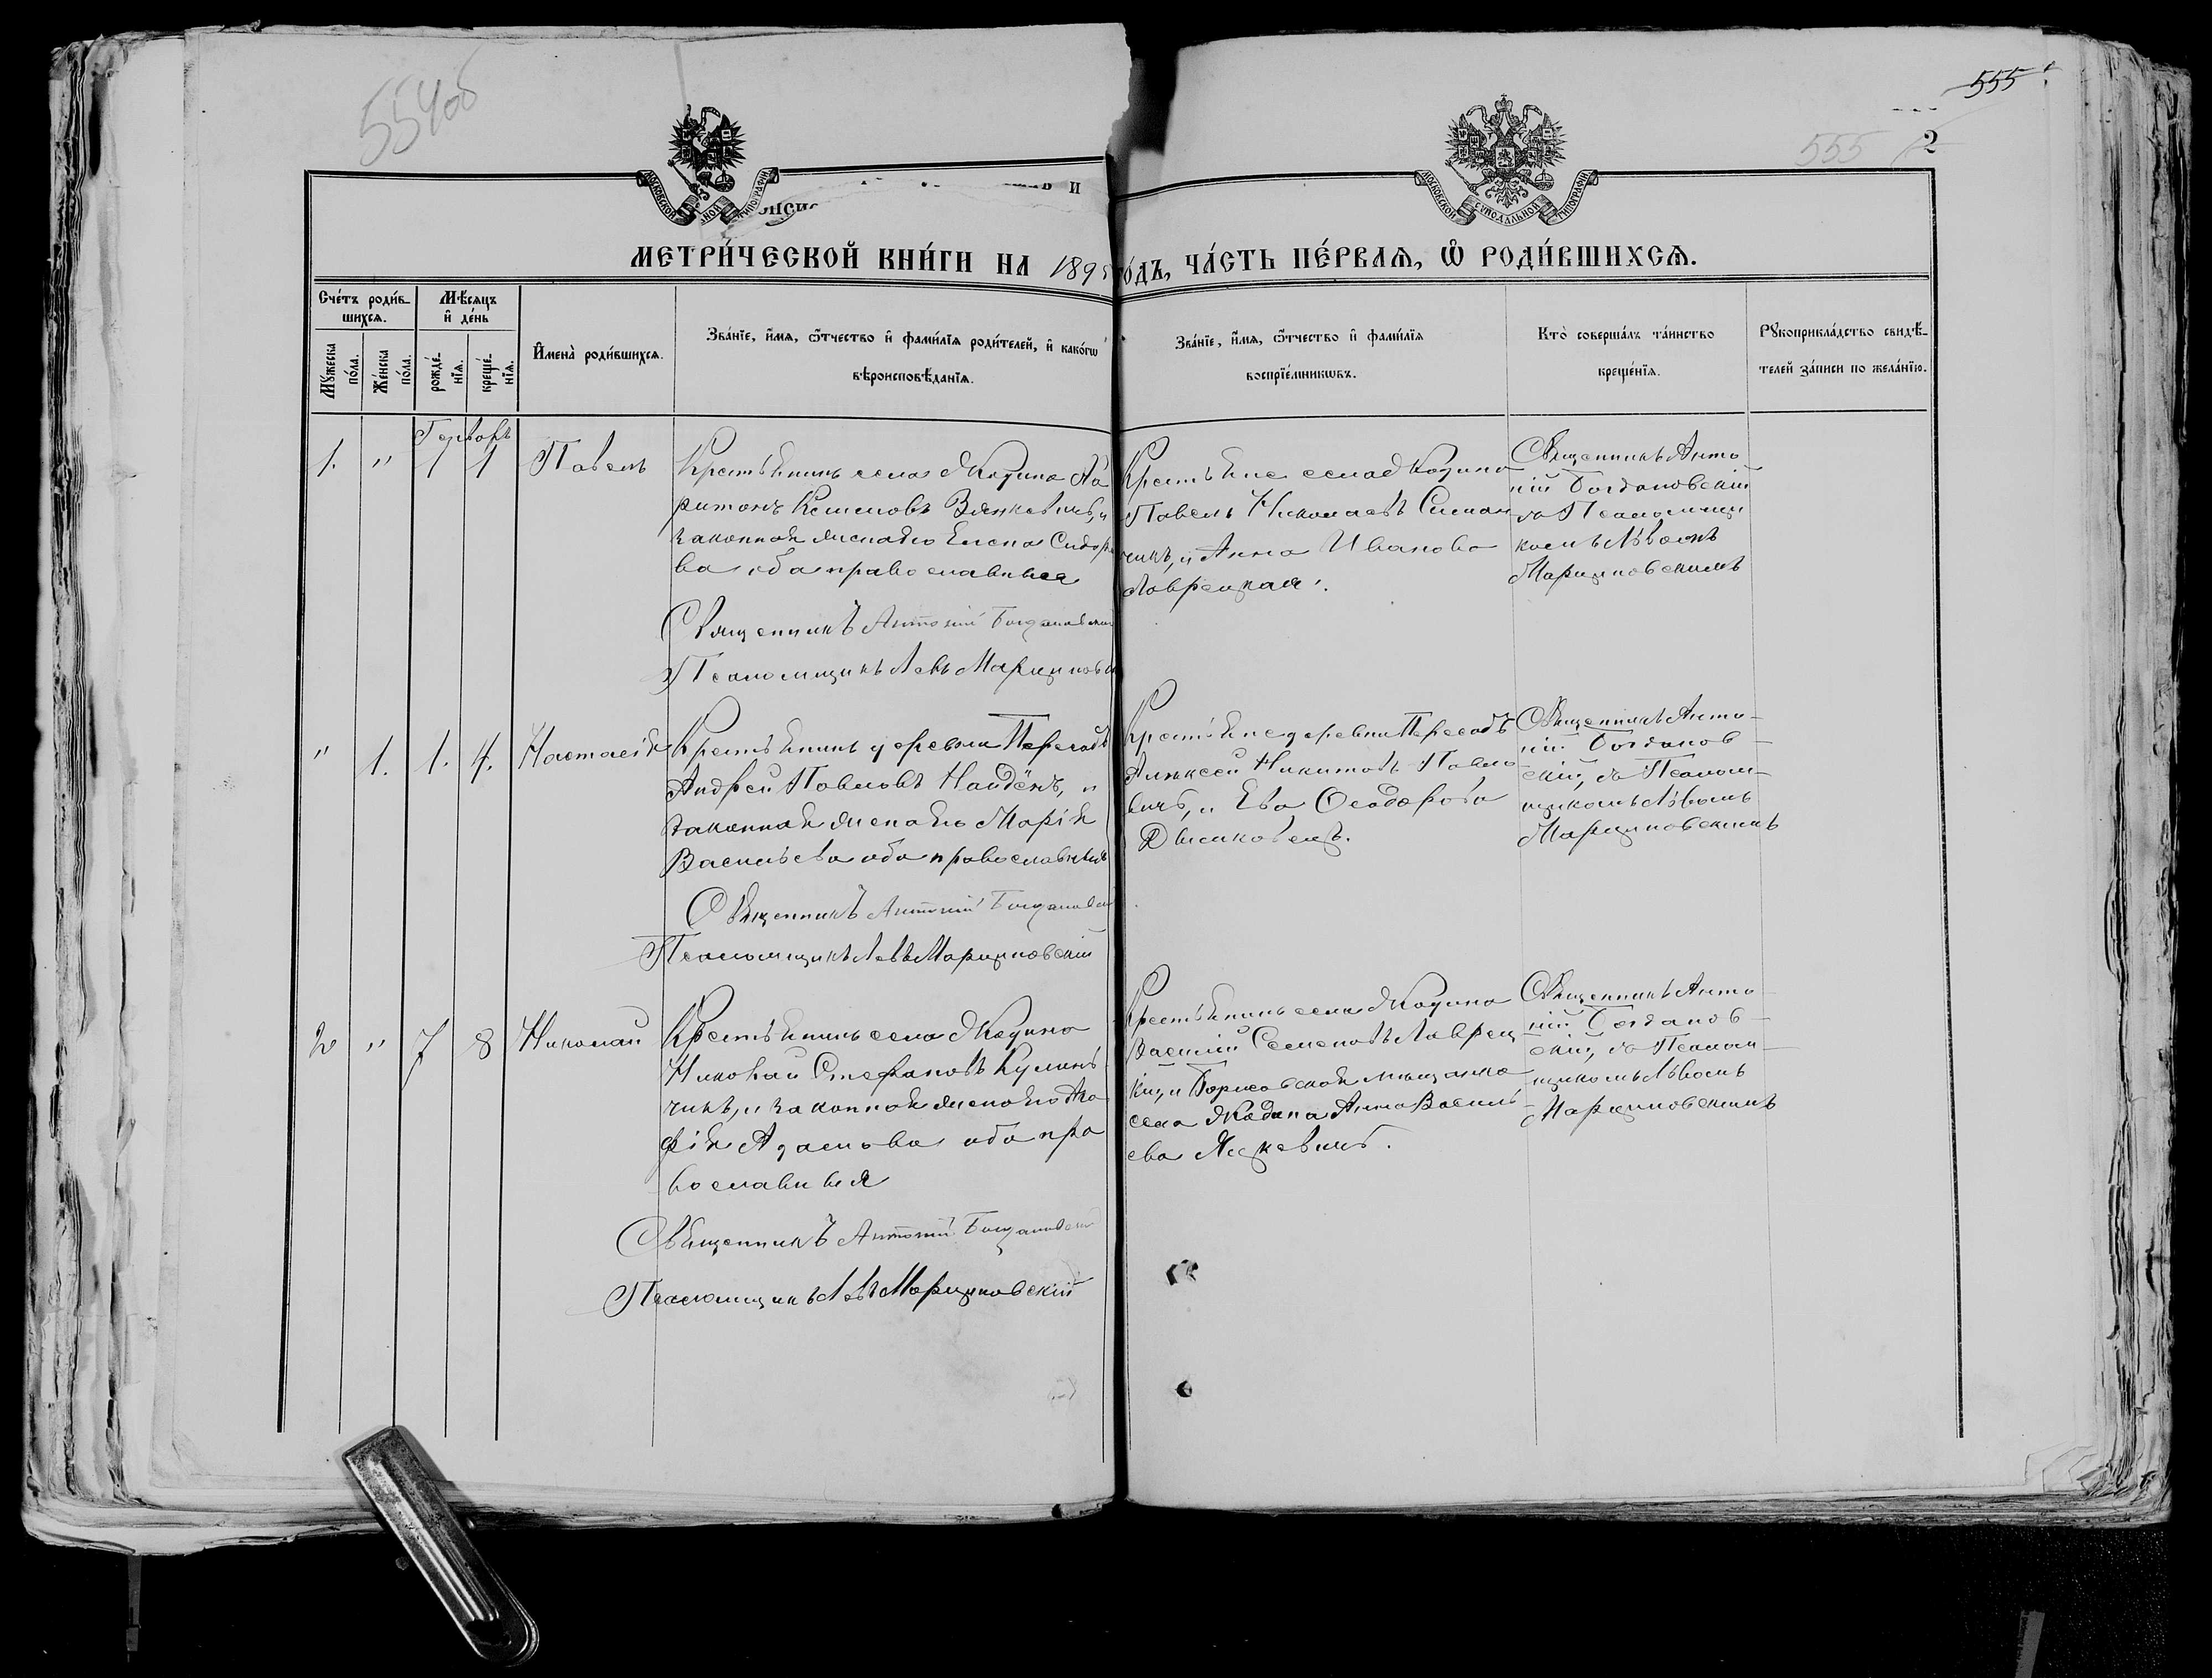 554об
555
555
2
МОСКОВСКОЙ
НОЙ
ТИПОГРАФІИ
МОСКОВСКОЙ
СѴНОДАЛЬНОЙ
ТИПОГРАФІИ
МЕТРИ́ЧЕСКОЙ КНИ́ГИ НА 189
го́дъ, ЧА́СТЬ ПЕ́РВАѦ, Ѡ РОДИ́ВШИХСѦ.
Сче́тъ роди́в-
шихсѧ.
Мꙋ́жеска
по́ла.
Же́нска
по́ла.
Мѣ́сѧцъ
и҆ де́нь
рожде́-
нїѧ.
креще́-
нїѧ.
И҆мена̀ роди́вшихсѧ.
Зва́нїе, и҆́мѧ, ѻ҆́тчество и҆ фами́лїѧ роди́телей, и҆ како́гѡ
вѣроисповѣ́данїѧ.
Зва́нїе, и҆́мѧ, ѻ҆́тчество и҆ фами́лїѧ
воспрїе́мникѡвъ.
Кто̀ соверша́лъ та́инство
креще́нїѧ.
Рꙋкоприкла́дство свидѣ́-
телей за́писи по жела́нїю.
Генварь
1. " 1 1 Павелъ
Крестьянинъ села Жодина Ха
ритонъ Семеновъ и
законная жена его Елена Сидоро
ва оба православные
Священникъ Антоній Богдановскій
Псаломщикъ Левъ Марциновск
Крестьяне села Жодина
Павелъ Николаевъ Симан
чикъ, и Анна Иванова
Лаврецкая.
Священникъ Анто
ній Богдановскій
съ Псаломщи
комъ Львомъ
Марциновскимъ
" 1. 1. 4. Настасія
Крестьянинъ деревни Пересадъ
Андрей Павловъ Найдёнъ, и
законная жена его Марія
Васильева оба православные
Священникъ Антоній Богдановск
Псаломщикъ Левъ Марциновскій
Крестьяне деревни Пересадъ
Алексей Никитовъ Павло
вичъ, и Ева Ѳеодорова
Священникъ Анто-
ній Богданов-
скій, съ Псалом-
щикомъ Львомъ
Марциновскимъ
2 " 7 8 Николай
Крестьянинъ села Жодина
Николай Стефановъ
чикъ, и законная жена его Ага
фія Адамова оба пра
вославныя
Священникъ Антоній Богдановскій
Псаломщикъ Левъ Марциновскій
Крестьянинъ села Жодина
Василій Семеновъ Лаврец
кій, и Борисовская мещанка
села Жодина Анна Василь
ева Яцкевичъ.
Священникъ Анто-
ній Богданов-
скій, съ Псалом-
щикомъ Львомъ
Марциновскимъ